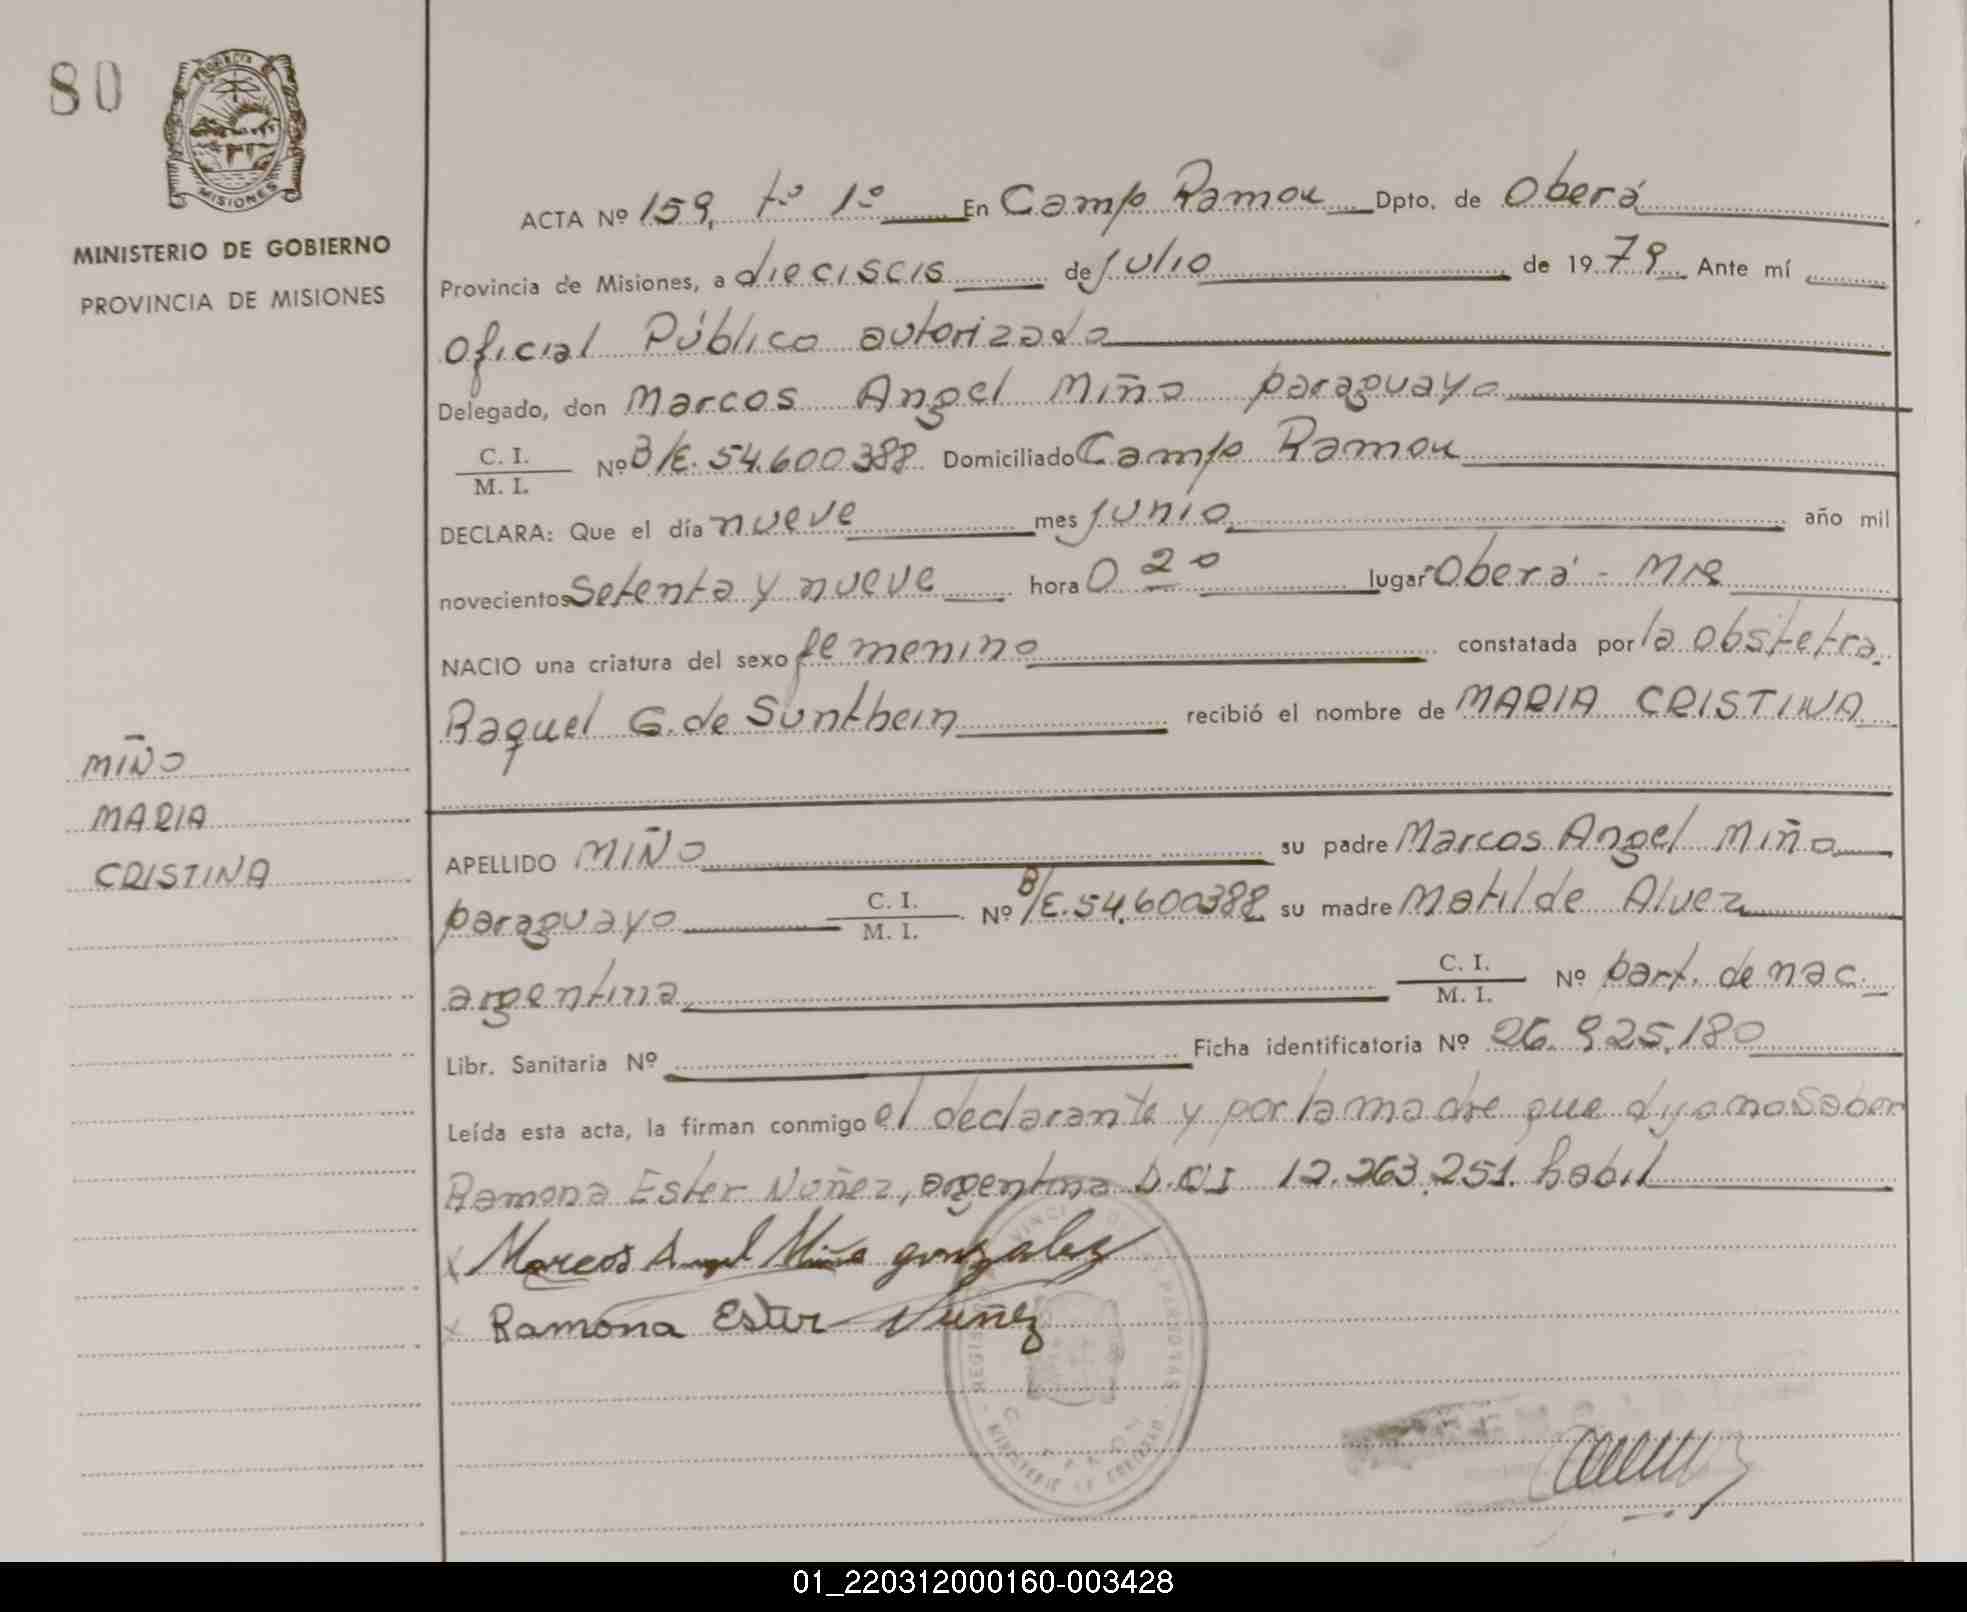 80
PROVINCIA
MISIONES
MINISTERIO DE GOBIERNO
PROVINCIA DE MISIONES
ACTA Nº 159, tº 1º En Campo Ramon Dpto. de Oberá
Provincia de Misiones, a dieciseis de julio de 1979 Ante mí
Oficial Público autorizado
Delegado, don Marcos Angel Miño paraguayo
C. I.
M. I. Nº B/E. 54.600388 Domiciliado Campo Ramon
DECLARA: Que el día nueve mes junio año mil
novecientos setenta y nueve hora 0 20 lugar Oberá - Mnes
NACIO una criatura del sexo femenino constatada por la obstetra
Raquel G. de Sunthein recibió el nombre de MARIA CRISTINA
MIÑO
MARIA
CRISTINA
APELLIDO MIÑO su padre Marcos Angel Miño
paraguayo C. I.
M. I. Nº B/E. 54.600388 su madre Matilde Alvez
argentina C. I.
M. I. Nº part. de nac.
Libr. Sanitaria Nº Ficha identificatoria Nº 26.925.180
Leída esta acta, la firman conmigo el declarante y por la madre que dijo no saber
Ramona Ester Nuñez, argentina D.N.I 12.263.251. habil
x Marcos Angel Miño gonzalez
x Ramona Ester Nuñez
01_220312000160-003428